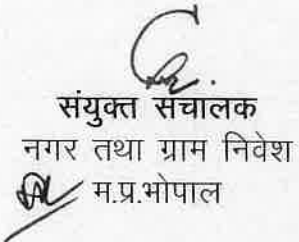 संयुक्त संचालक
नगर तथा ग्राम निवेश
म.प्र.भोपाल